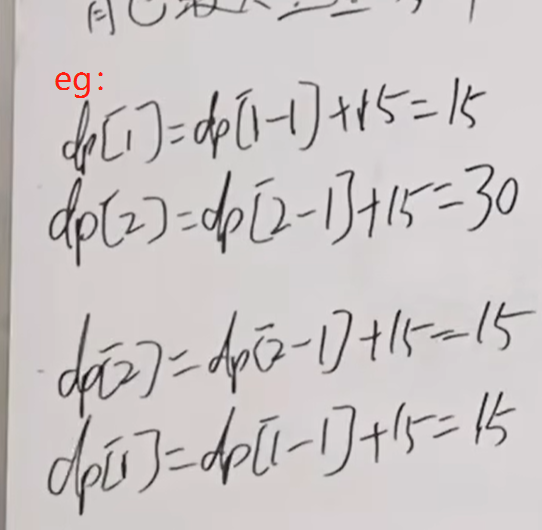 eg:
dp[1]=dp[1-1]+15=15
dp[2]=dp[2-1]+15=30
dp[2]=dp[2-1]+15=15
dp[1]=dp[1-1]+15=15